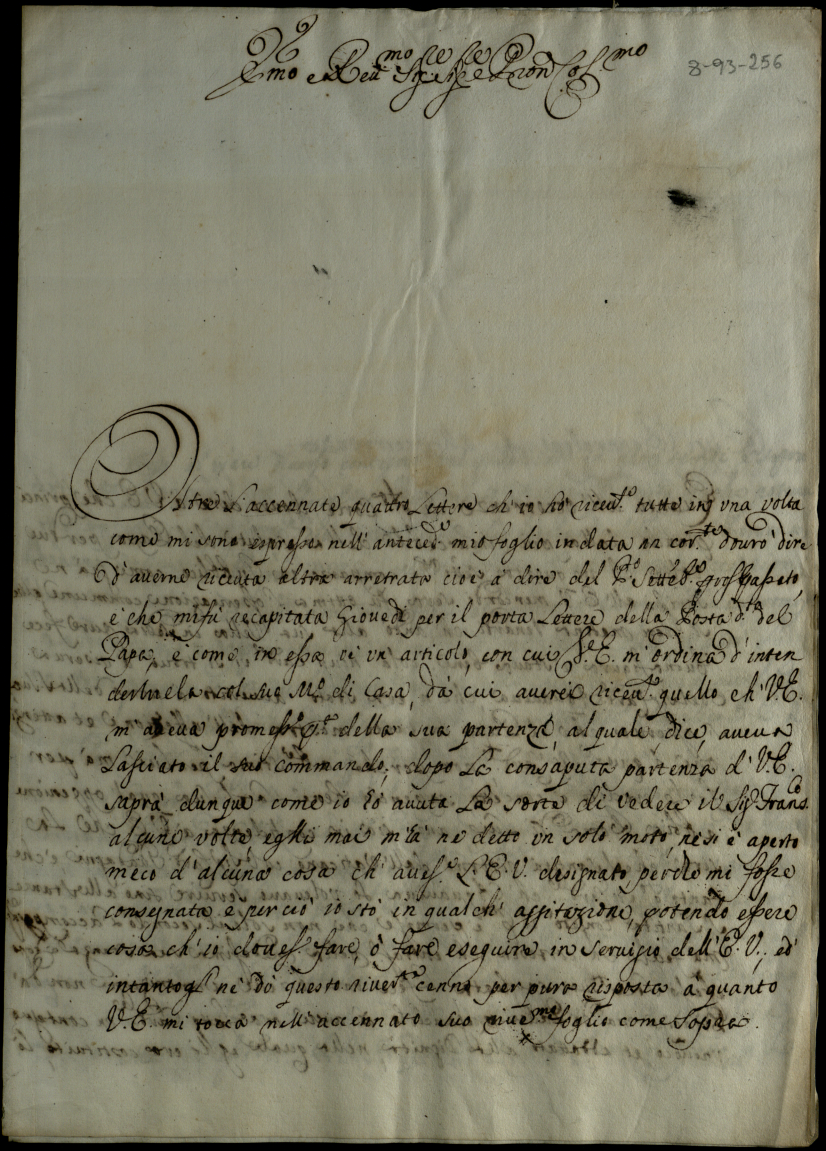 Em.mo e Rev.mo Sig.re Sig.re e Pron Col.mo
8-93-256
Oltre l'accennate quattro Lettere ch' io hò riceu.to tutte in una volta
come mi sono espresso nell' anteced.e mio foglio in data cor.te dourò dire
d' auerne riceuta altra arretrata cioè à dire del P.o Sette.bre pross.o passato,
e che mi fù recapitata Giouedi per il porta Lettere della Posta d.ta del
Papa, e come in essa vi è un articolo, con cui V.E. m' ordina d' inten
dermela col suo M.o di Casa, da cui auerei riceu.to quello, ch' V.E.
m' aueua promesso della sua partenza, al quale dice, aueua
Lasciato il suo commando, dopo La consaputa partenza d' V.E.
saprà dunque come io hò auuta La sorte di vedere il Sig. Franc.o
alcune volte, egli mai m' hà ne detto un solo moto, ne si è aperto
meco d' alcuna cosa ch' auess.e L.E.V. designato perche mi fosse
consegnata e per ciò io stò in qualch' aggitazione, potendo essere
cosa ch' io douess.e fare, ò fare eseguire in seruigio dell' E.V., ed
intanto gl' ne dò questo river.te cenno per pura risposta à quanto
V.E. mi tocca nell' accennato suo riue.mo foglio come sopra.